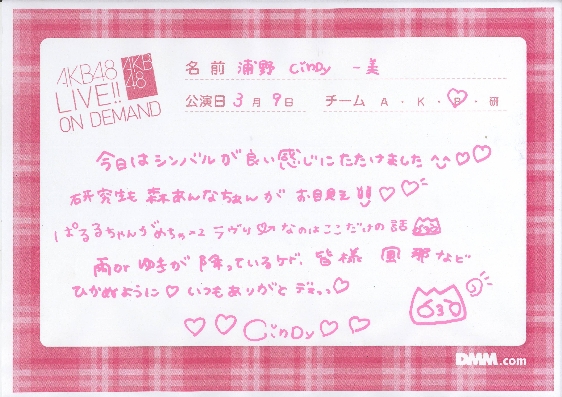 AKB48
LIVE!!
ON DEMAND
AKB
48
名前 浦野 Cindy 一美
公演日 3月9日 チーム A・K・B・研
今日はシンバルが良い感じにたたけました^^♡♡
研究生も森あんなちゃんがお目見え!!♡♡
ぱるるちゃんがめちゃ ラヴリ なのはここだけの話
雨or ゆきが降っているケド、皆様 風邪など
ひかぬように♡いつもありがと デスっ♡
♡♡Cindy♡♡
DMM.com